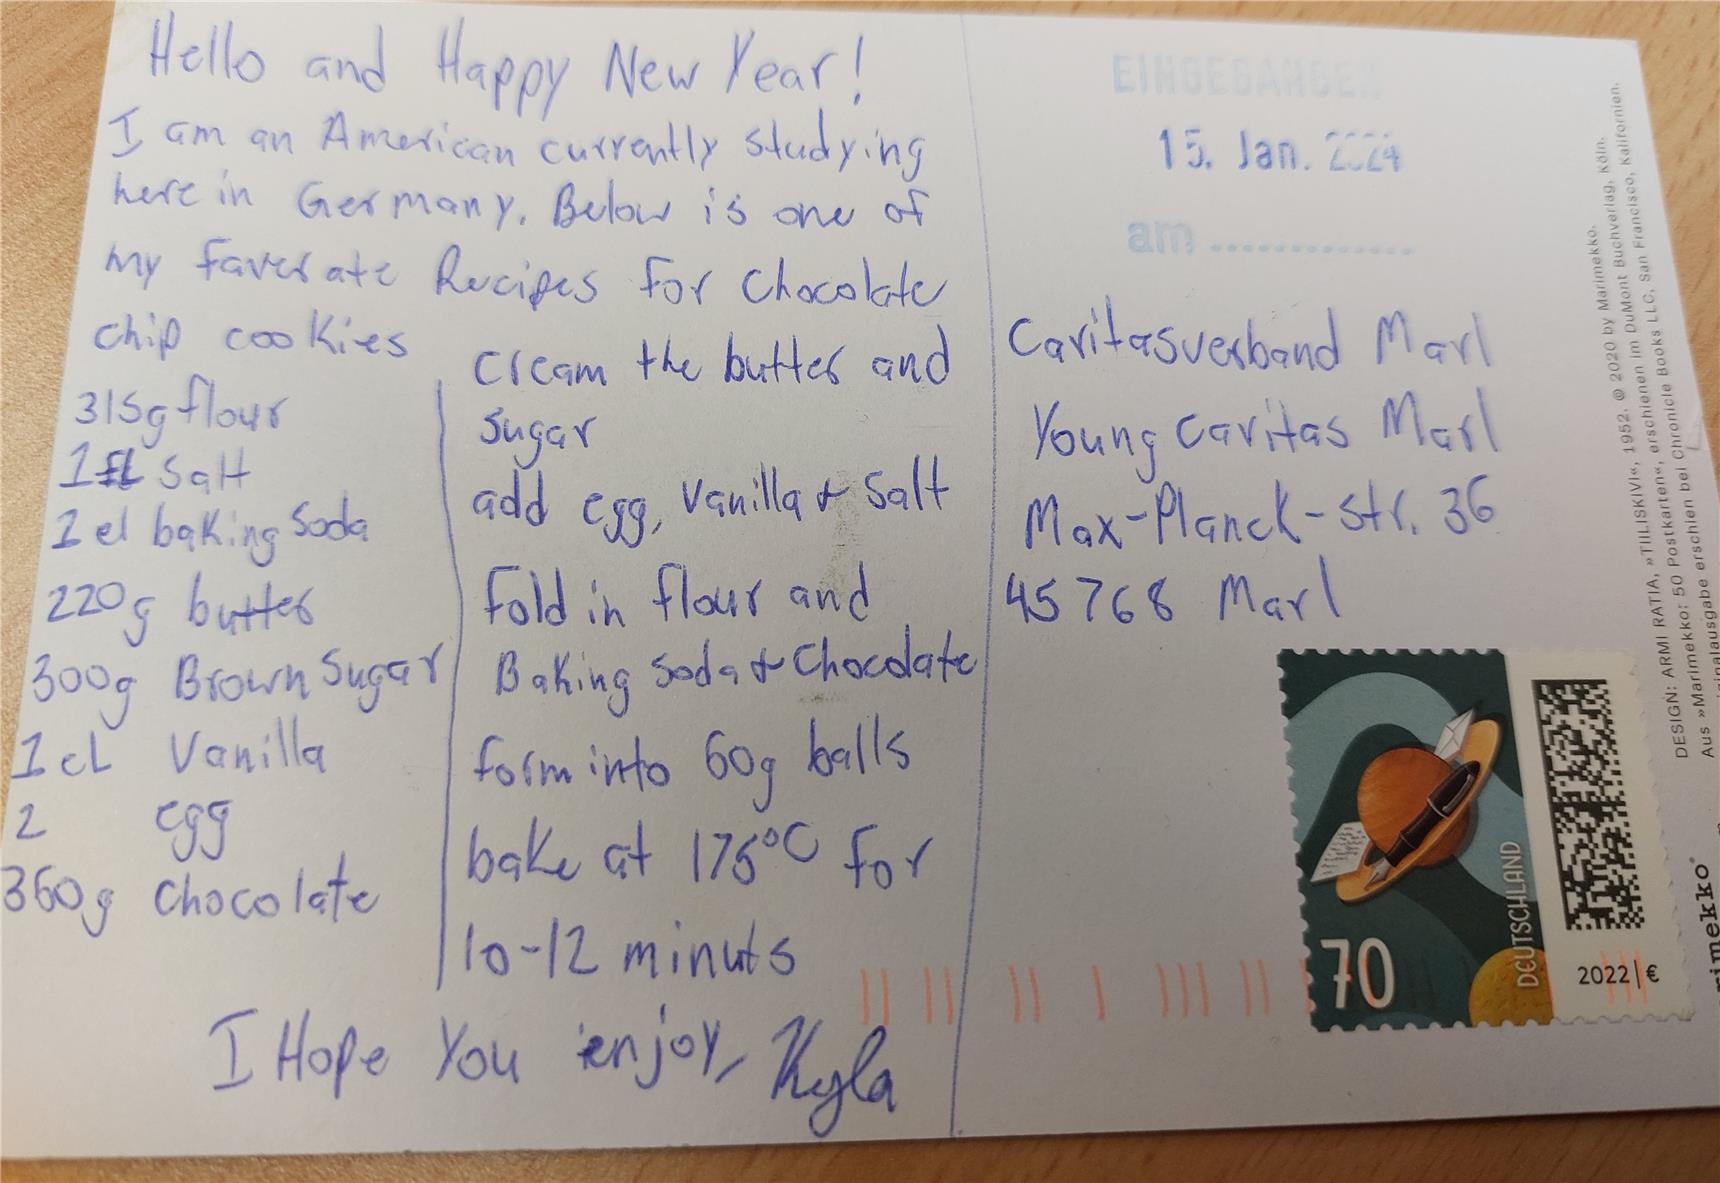 Hello and Happy New Year!
I am an American currently studying
here in Germany. Below is one of
my faverate Recipes for Chocolate
chip cookies
315g flour
1 salt
1 el baking soda
220g butter
300g Brown Sugar
1 el Vanilla
2 egg
360g Chocolate
Cream the butter and
sugar
add egg, vanilla + salt
fold in flour and
Baking soda + Chocolate
form into 60g balls
bake at 175°C for
10-12 minuts
I Hope You enjoy, Kyla
EINGEGANGEN
15. Jan. 2024
am ..............
Caritasverband Marl
Young Caritas Marl
Max-Planck-str. 36
45768 Marl
70
DEUTSCHLAND
2022 | €
DESIGN: ARMI RATIA, »TIILISKIVI«, 1952. © 2020 by Marimekko.
Aus »Marimekko: 50 Postkarten«, erschienen im DuMont Buchverlag, Köln.
ginalausgabe erschien bei Chronicle Books LLC, San Francisco, Kalifornien.
rimekko®